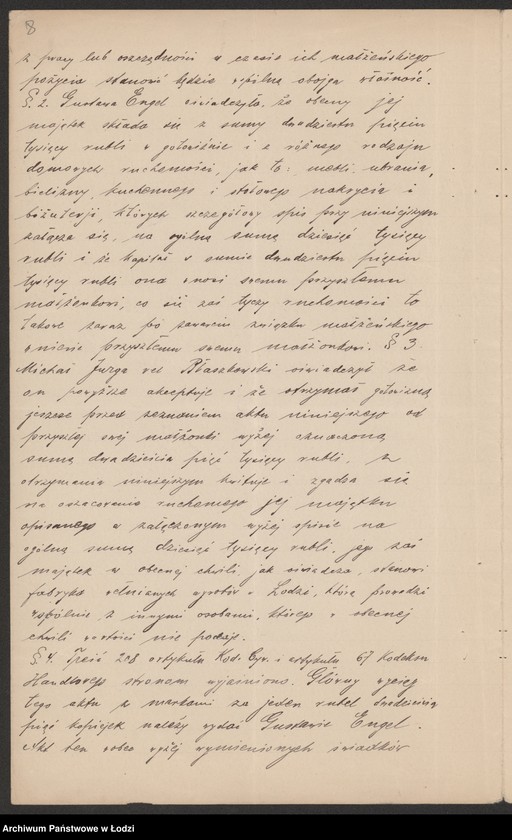 8
z pracy lub oszczędności w czasie ich małżeńskiego
pożycia stanowić będzie wspólną obojga własność.
§. 2. Gustawa Engel oświadczyła, że obecny jej
majątek składa się z sumy dwudziestu pięciu
tysięcy rubli w gotowiźnie i z różnego rodzaju
domowych ruchomości, jak to: mebli, ubrania,
bielizny, kuchennego i stołowego nakrycia i
biżuterji, których szczegółowy spis przy niniejszym
załącza się, na ogólną sumę dziesięć tysięcy
rubli i że kapitał w sumie dwudziestu pięciu
tysięcy rubli ona wnosi swemu przyszłemu
małżonkowi, co się zaś tyczy ruchomości to
takowe zaraz po zawarciu związku małżeńskiego
wniesie przyszłemu swemu małżonkowi. § 3.
Michał Jurga vel Błaszkowski oświadczył że
on powyższe akceptuje i że otrzymał gotowizną
jeszcze przed zeznaniem aktu niniejszego od
przyszłej swej małżonki wyżej oznaczoną
sumę dwadzieścia pięć tysięcy rubli, z
otrzymania niniejszym kwituje i zgadza się
na oszacowanie ruchomego jej majątku
opisanego w załączonym wyżej spisie na
ogólną sumę dziesięć tysięcy rubli, jego zaś
majątek w obecnej chwili, jak oświadcza, stanowi
fabryka wełnianych wyrobów w Łodzi, którą prowadzi
wspólnie z innymi osobami, którego w obecnej
chwili wartości nie podaje.
§ 4. Treść 208 artykułu Kod. Cyw. i artykułu 67 Kodeksu
Handlowego stronom wyjaśniono. Główny wyciąg
tego aktu z markami za jeden rubel dwadzieścia
pięć kopiejek należy wydać Gustawie Engel.
Akt ten wobec wyżej wymienionych świadków
Archiwum Państwowe w Łodzi